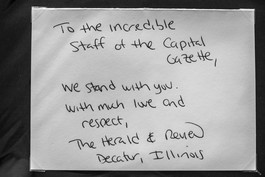 To the incredible
Staff of the Capital
Gazette,
We stand with you.
With much love and
respect,
The Herald & Review
Decatur, Illinois